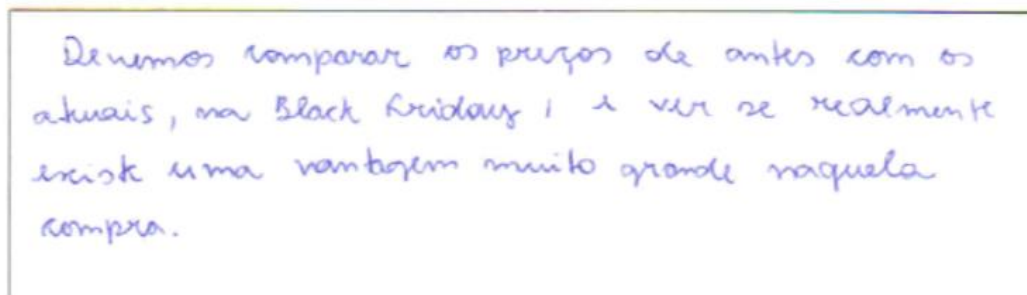 Devemos comparar os preços de antes com os
atuais, na Black Friday, e ver se realmente
existe uma vantagem muito grande naquela
compra.